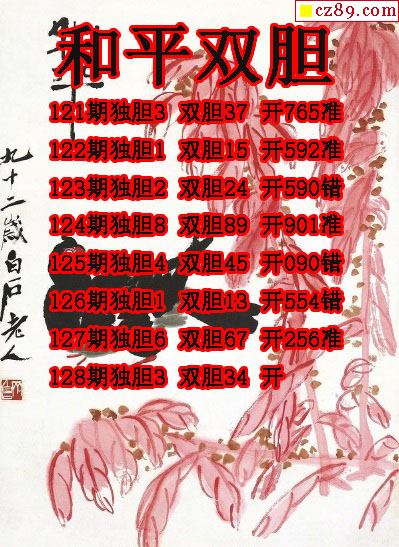 cz89.com
和平双胆
121期独胆3 双胆37 开765准
122期独胆1 双胆15 开592准
123期独胆2 双胆24 开590错
124期独胆8 双胆89 开901准
125期独胆4 双胆45 开090错
126期独胆1 双胆13 开554错
127期独胆6 双胆67 开256准
128期独胆3 双胆34 开
九十二岁白石老人